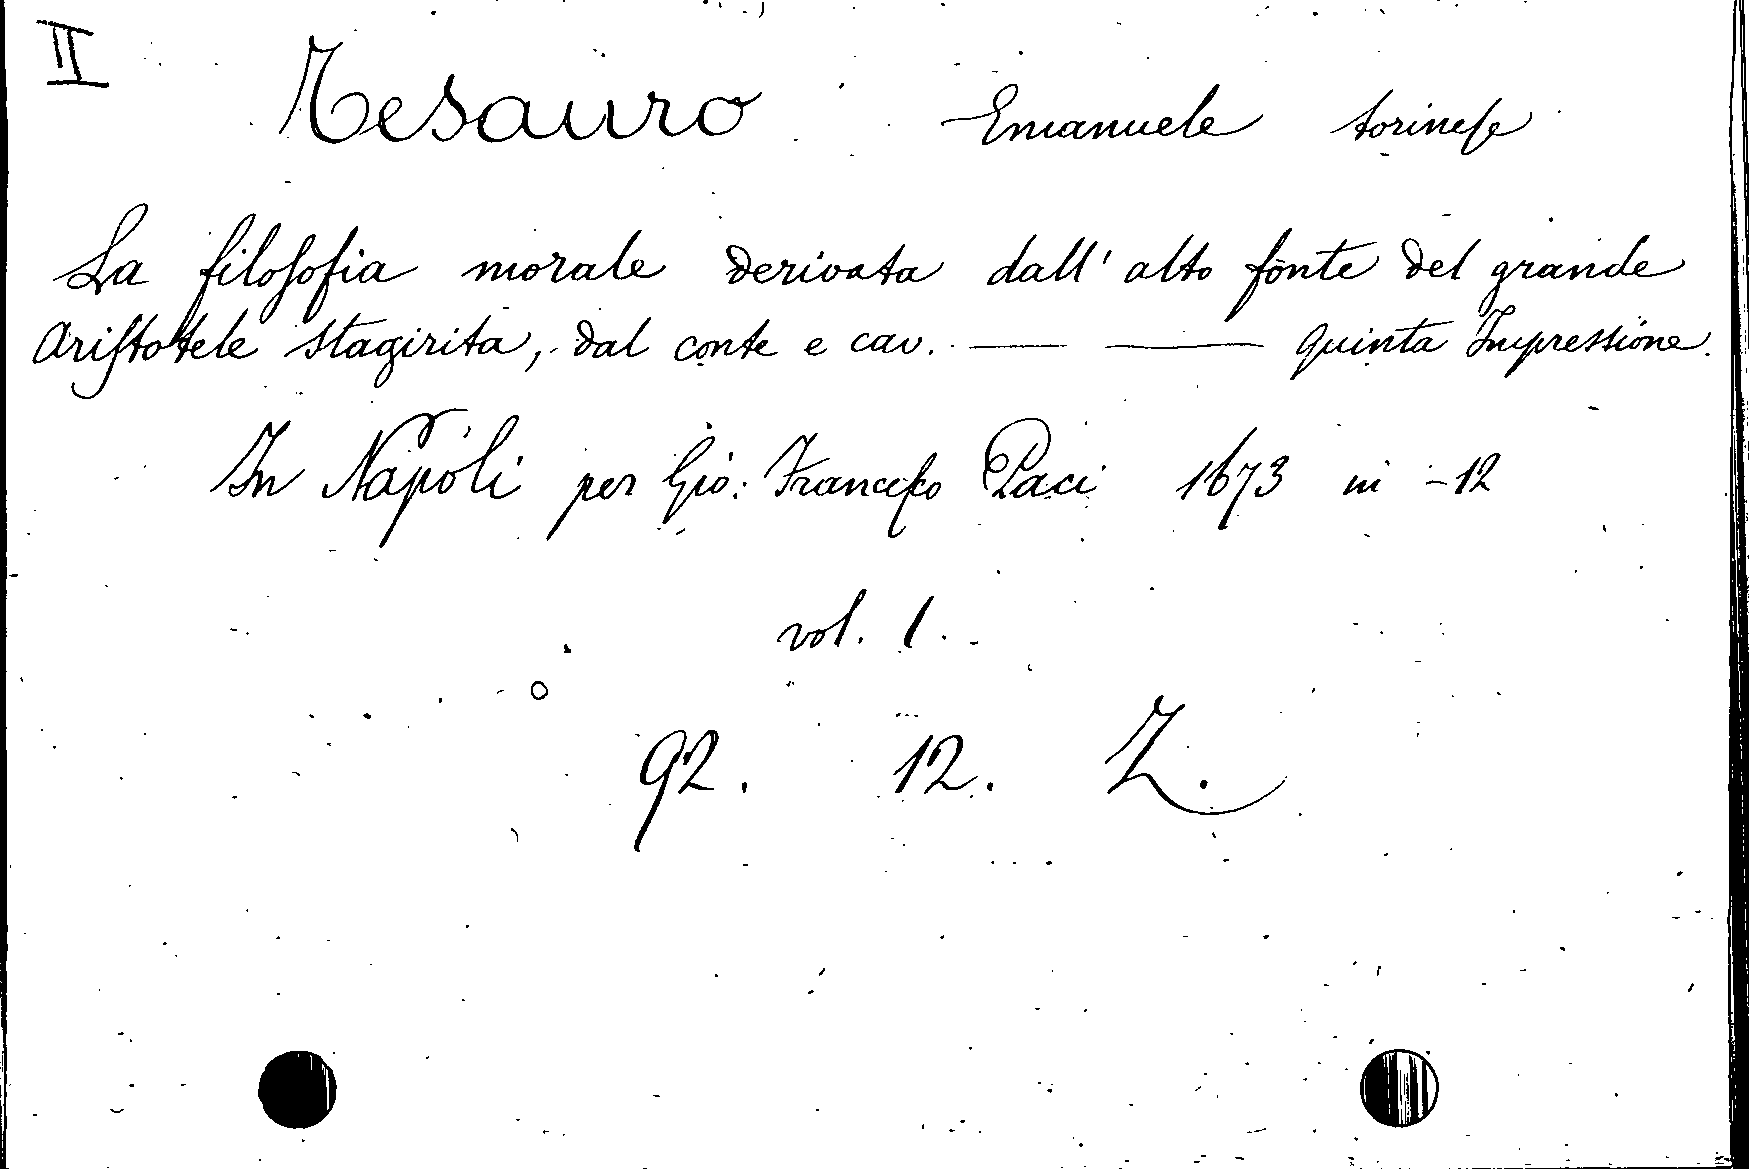 II
Tesauro Emanuele torinese
La filosofia morale derivata dall' alto fonte del grande
Aristotele stagirita, dal conte e cav. —— —— quinta Impressione.
In Napoli per Gio: Francesco Paci 1673 in -12
vol. 1.
92. 12. Z.